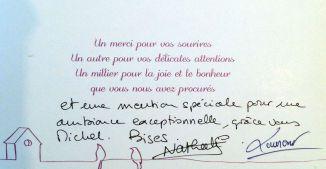 Un merci pour vos sourires
Un autre pour vos délicates attentions
Un millier pour la joie et le bonheur
que vous nous avez procurés
et une mention spéciale pour une
ambiance exceptionnelle, grâce vous
Michel. Bises. Nathalie Laurent